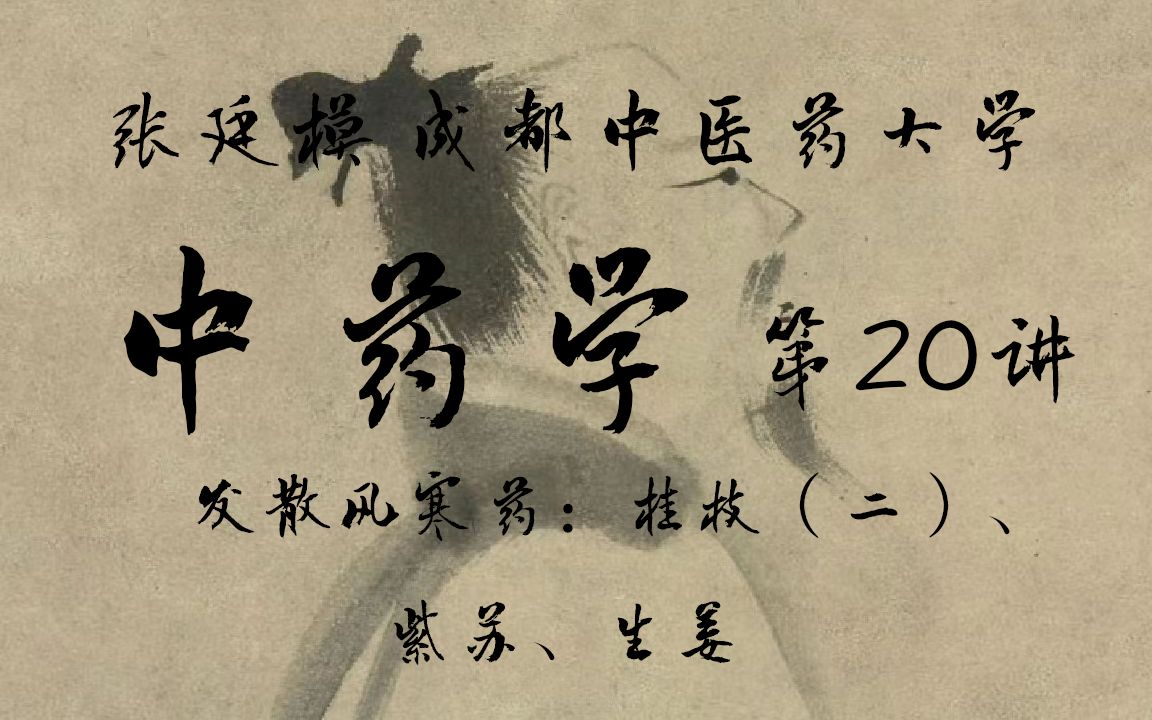 张廷模成都中医药大学
中药学 第20讲
发散风寒药：桂枝（二）、
紫苏、生姜